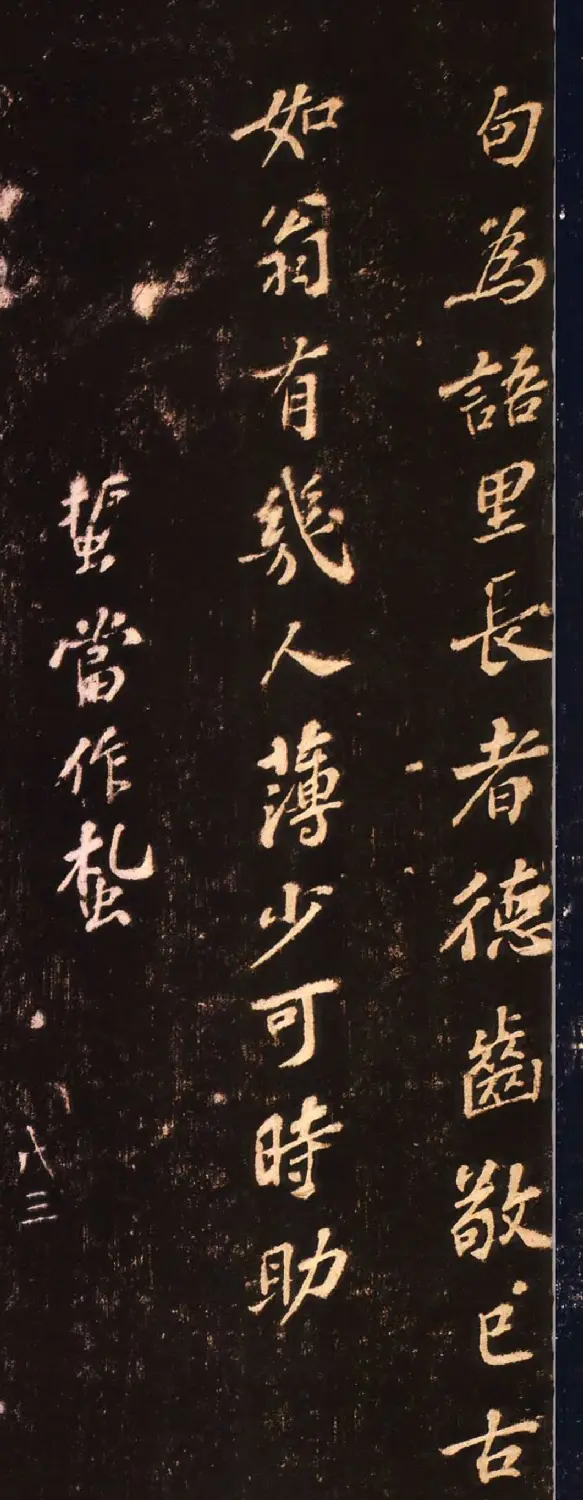 為語里長者德齒敬已古
如翁有幾人薄少可時助
當作
八三